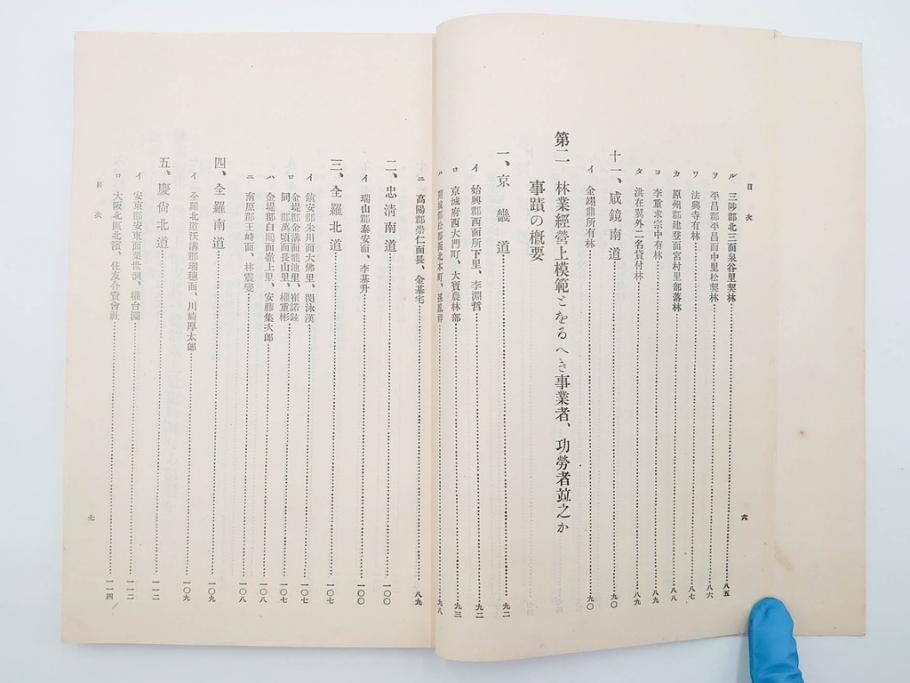 目次
ル 三陟郡北三面泉谷里契林 八五
ヲ 平昌郡平昌面中里松契林 八六
ワ 法興寺有林 八七
カ 原州郡建登面宮村里部落林 八八
ヨ 李重求宗中有林 八九
タ 洪在翼外二名貸付林 八九
十一、咸鏡南道 九〇
イ 金鼎所有林 九〇
第二 林業經營上模範となるへき事業者、功勞者竝之か
事蹟の概要
一、京畿道 九二
イ 始興郡西面所下里、李淵 九二
ロ 京城府西大門町、大寶農林部 九三
ハ 郡松都面北本町、孫鳳祥 九八
六
ニ 高陽郡崇仁面長、金基宅 八九
二、忠淸南道 一〇〇
イ 瑞山郡泰安面、李基升 一〇〇
三、全羅北道 一〇七
イ 鎭安郡朱川面大佛里、閔泳漢 一〇七
ロ 金堤郡金溝面龍池里、崔
同郡萬頃面長山里、權重彬 一〇七
ハ 金堤郡白鷗面嶺上里、安藤集次郎 一〇八
ニ 南原郡王峙面、林震燮 一〇八
四、全羅南道 一〇九
イ 全羅北道沃溝郡瑞穗面、川崎厚太郎 一〇九
五、慶尙北道 一一二
イ 安東郡安東面栗世洞、權台淵 一一二
ロ 大阪北區北濱、住友合資會社 一一四
目次
七